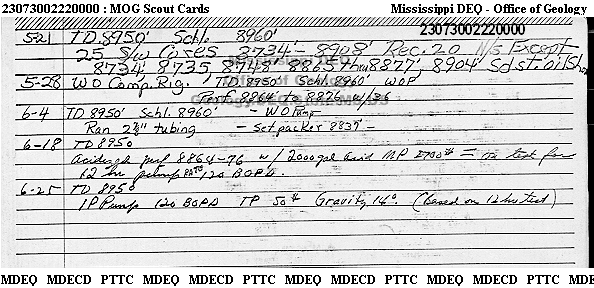 23073002220000 : MOG Scout Cards Mississippi DEQ - Office of Geology
23073002220000
5-21 TD 8950' Schl. 8960'
25 S/W Cores 8734' - 8908' Rec. 20 N/S Except
8734, 8735, 8748' 8865 thru 8877', 8904' Sdst. oil
5-28 WO Comp. Rig. TD 8950' Schl. 8960' WOP
Perf 8864' to 8876 w/36
6-4 TD 8950' Schl. 8960' WO Pump
Ran 2 7/8" tubing - Set packer 8837' -
6-18 TD 8950
Acidized perf 8864-76 w/ 2000 gal acid MP 2700# = on test for
12 hr pump rate 120 BOPD.
6-25 TD 8950
IP Pump 120 BOPD TP 50# Gravity 14°. (Based on 12 hr test)
MDEQ MDECD PTTC MDEQ MDECD PTTC MDEQ MDECD PTTC MDEQ MDECD PTTC MDE